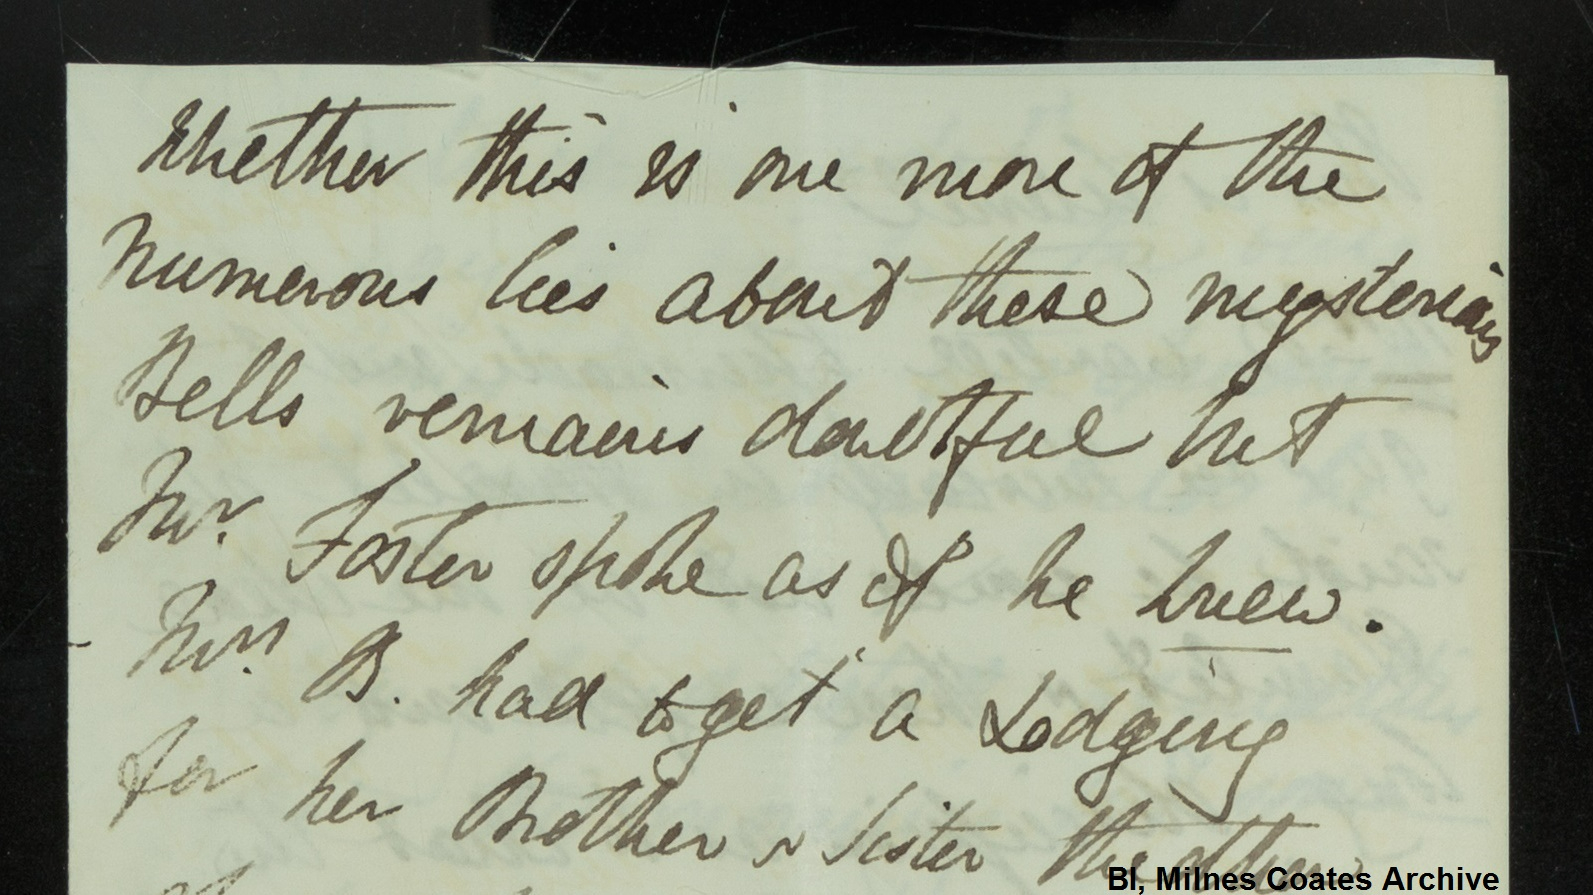 Whether this is one more of the
numerous lies about these mysterious
Bells remains doubtful but
Mr. Foster spoke as if he knew.
Mrs. B. had to get a Lodging
for her Brother & Sister the other
BI, Milnes Coates Archive